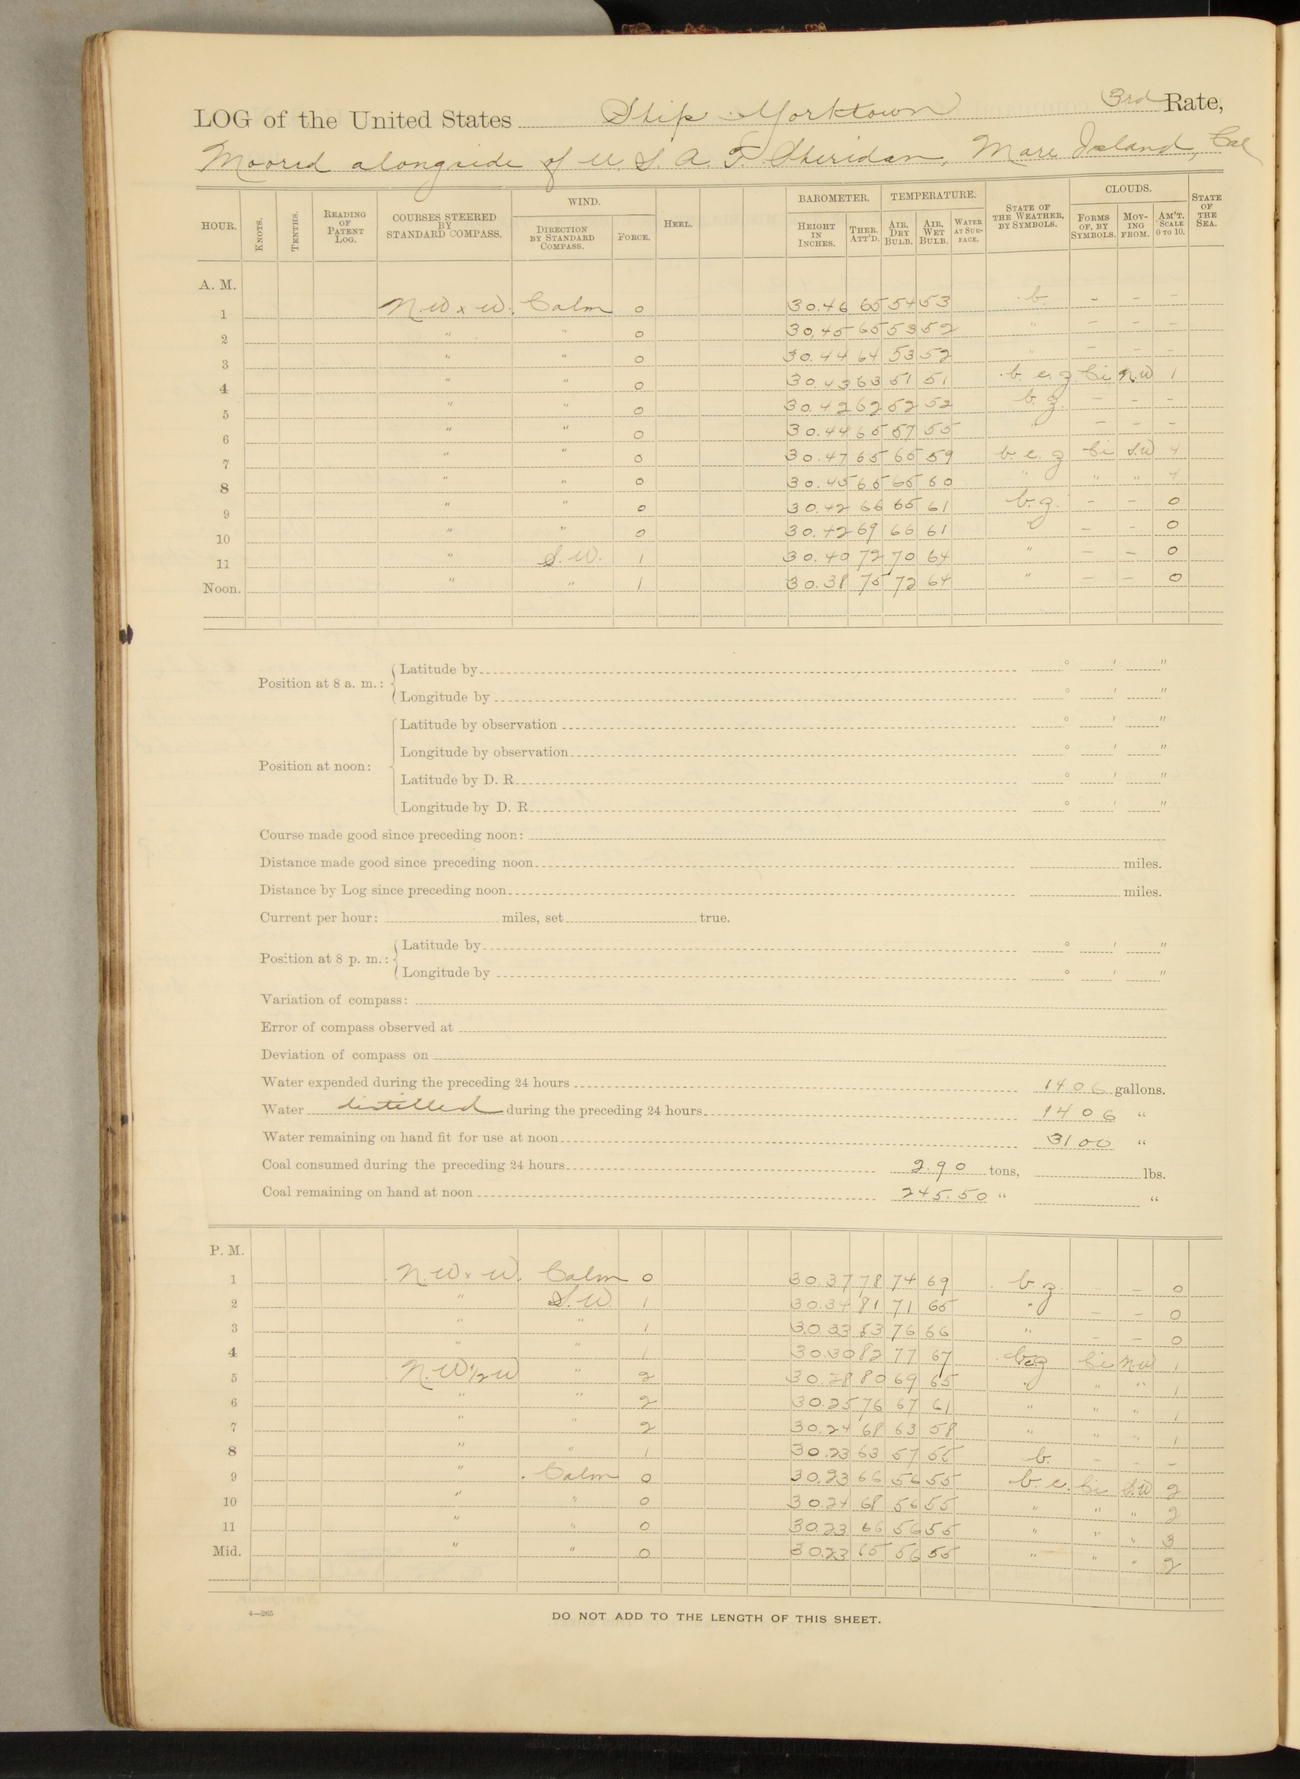 LOG of the United States Ship Yorktown 3rd Rate,
Moored alongside of U.S.A.T. Sheridan, Mare Island, Cal
HOUR. KNOTS. TENTHS. READING OF PATENT LOG. COURSES STEERED BY STANDARD COMPASS. WIND. DIRECTION BY STANDARD COMPASS. FORCE. HEEL. BAROMETER. HEIGHT IN INCHES. THER. ATT'D. TEMPERATURE. AIR, DRY BULB. AIR, WET BULB. WATER AT SURFACE. STATE OF THE WEATHER, BY SYMBOLS. CLOUDS. FORMS OF, BY SYMBOLS. MOVING FROM. AM'T. SCALE 0 TO 10. STATE OF THE SEA.
A. M.
1 N.W x W. Calm 0 30.46 65 54 53 b. - - -
2 " " 0 30.45 65 53 52 " - - -
3 " " 0 30.44 64 53 52 " - - -
4 " " 0 30.43 63 51 51 b. c. z Ci N.W 1
5 " " 0 30.42 62 52 52 b. z - - -
6 " " 0 30.44 65 57 55 " - - -
7 " " 0 30.47 65 65 59 b. c. z Ci S.W 4
8 " " 0 30.45 65 65 60 " " " 4
9 " " 0 30.42 66 65 61 b. z. - - 0
10 " " 0 30.42 69 66 61 - - 0
11 " S.W. 1 30.40 72 70 64 " - - 0
Noon. " " 1 30.38 75 72 64 " - - 0
Position at 8 a. m.: Latitude by ° ' "
Longitude by ° ' "
Position at noon: Latitude by observation ° ' "
Longitude by observation ° ' "
Latitude by D. R. ° ' "
Longitude by D. R. ° ' "
Course made good since preceding noon:
Distance made good since preceding noon miles.
Distance by Log since preceding noon miles.
Current per hour: miles, set true.
Position at 8 p. m.: Latitude by ° ' "
Longitude by ° ' "
Variation of compass:
Error of compass observed at
Deviation of compass on
Water expended during the preceding 24 hours 1406 gallons.
Water distilled during the preceding 24 hours 1406 "
Water remaining on hand fit for use at noon 3100 "
Coal consumed during the preceding 24 hours 2.90 tons, lbs.
Coal remaining on hand at noon 245.50 " "
P. M.
1 N.W x W. Calm 0 30.37 78 74 69 b z - - 0
2 " S.W. 1 30.34 81 71 65 " - - 0
3 " " 1 30.33 83 76 66 " - - 0
4 " " 1 30.30 82 77 67 bcz Ci N.W 1
5 N.W 1/2 W " 2 30.28 80 69 65 " " " 1
6 " " 2 30.25 76 67 61 " " " 1
7 " " 2 30.24 68 63 58 " " " 1
8 " " 1 30.23 63 57 55 b. - - -
9 " Calm 0 30.23 66 56 55 b. c. Ci S.W 2
10 " " 0 30.24 68 56 55 " " " 2
11 " " 0 30.23 66 56 55 " " " 3
Mid. " " 0 30.23 65 56 55 " " " 2
4—265
DO NOT ADD TO THE LENGTH OF THIS SHEET.